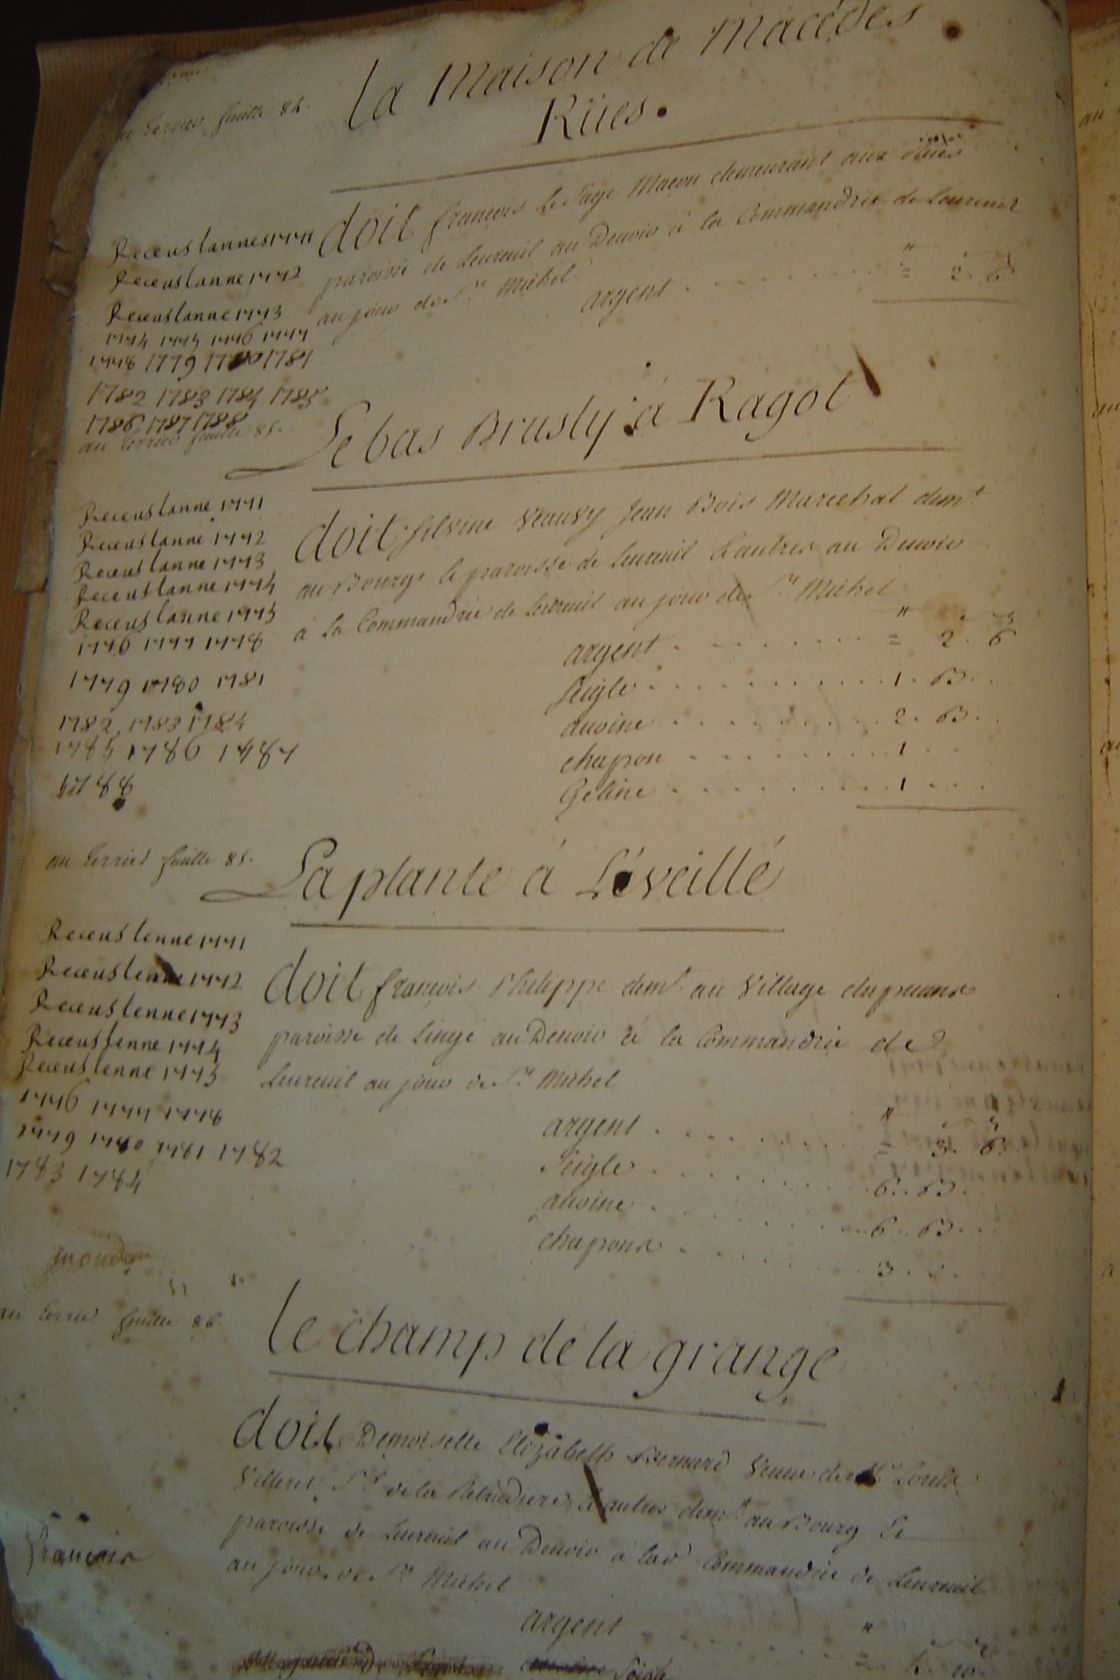 la Maison de Macedes
Rües.
au terrier feuille 84.
doit françois le Sage Maçon demeurant aux
paroisse de Lureuil au Devoir à la Commandrie de Lureuil
au jour de St Michel
argent " = 2. 6
Receus lanne 1771
Receus lanne 1772
Receus lanne 1773
1774 1775 1776 1777
1778 1779 1780 1781
1782 1783 1784 1785
1786 1787 1788
au terrier feuille 85.
Le bas Brusly à Ragot
doit Silvine Vauvy Jean Bois Marechal demt
au Bourg & paroisse de Lureuil & autres au Devoir
à la Commandrie de Lureuil au jour de St Michel
argent " = 2. 6
Seigle 1. B.
avoine 2. B.
chapon 1
Geline 1
Receus lanne 1771
Receus lanne 1772
Receus lanne 1773
Receus lanne 1774
Receus lanne 1775
1776 1777 1778
1779 1780 1781
1782 1783 1784
1785 1786 1787
1788
au terrier feuille 85.
La plante à L'éveillé
doit françois Philippe demt au Village
paroisse de Lingé au Devoir à la Commandrie de
Lureuil au jour de St Michel
argent " = 3. 6
Seigle 6. B.
avoine 6. B.
chapons 3
Receus lenne 1771
Receus lenne 1772
Receus lenne 1773
Receus lenne 1774
Receus lenne 1775
1776 1777 1778
1779 1780 1781 1782
1783 1784
au terrier feuille 86
le champ de la grange
doit Demoiselle Elizabeth Bernard Veuve de Mr Louis
Villeret Sr de la & autres demt au Bourg &
paroisse de Lureuil au Devoir à lad Commandrie de Lureuil
au jour de St Michel
françois
argent "
Seigle